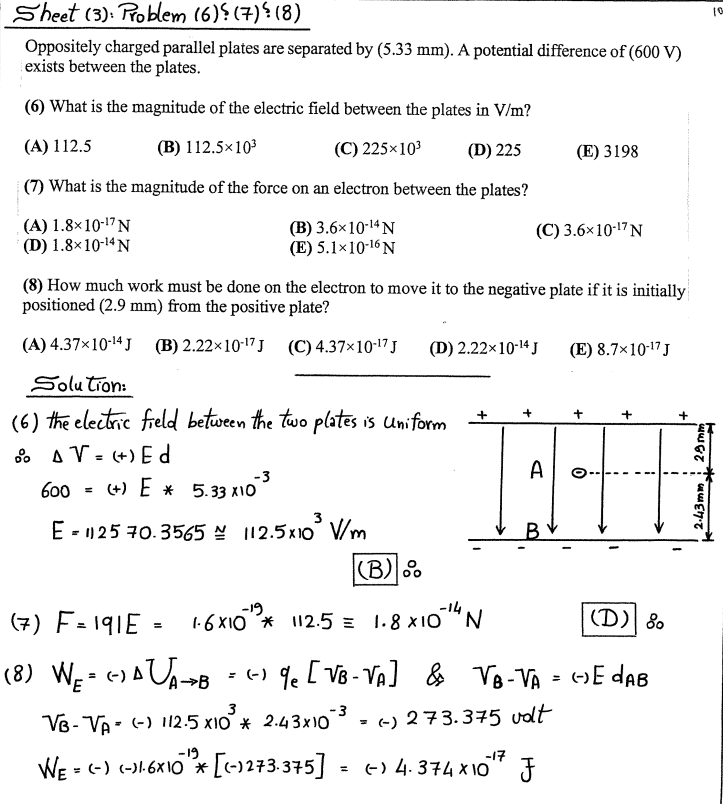 Sheet (3): Problem (6) & (7) & (8)
10
Oppositely charged parallel plates are separated by (5.33 mm). A potential difference of (600 V)
exists between the plates.
(6) What is the magnitude of the electric field between the plates in V/m?
(A) 112.5 (B) 112.5×10³ (C) 225×10³ (D) 225 (E) 3198
(7) What is the magnitude of the force on an electron between the plates?
(A) 1.8×10⁻¹⁷ N (B) 3.6×10⁻¹⁴ N (C) 3.6×10⁻¹⁷ N
(D) 1.8×10⁻¹⁴ N (E) 5.1×10⁻¹⁶ N
(8) How much work must be done on the electron to move it to the negative plate if it is initially
positioned (2.9 mm) from the positive plate?
(A) 4.37×10⁻¹⁴ J (B) 2.22×10⁻¹⁷ J (C) 4.37×10⁻¹⁷ J (D) 2.22×10⁻¹⁴ J (E) 8.7×10⁻¹⁷ J
Solution:
(6) the electric field between the two plates is Uniform
ΔV = (+) E d
600 = (+) E * 5.33 x10⁻³
E = 112570.3565 ≅ 112.5x10³ V/m
(B)
+ + + + +
A
B
2.9 mm
2.43 mm
- - - - -
(7) F = |q|E = 1.6x10⁻¹⁹ * 112.5 ≡ 1.8 x10⁻¹⁴ N (D)
(8) W_E = (-) ΔU_A→B = (-) q_e [V_B - V_A] & V_B - V_A = (-) E d_AB
V_B - V_A = (-) 112.5 x10³ * 2.43x10⁻³ = (-) 273.375 volt
W_E = (-) (-)1.6x10⁻¹⁹ * [(-)273.375] = (-) 4.374 x10⁻¹⁷ J